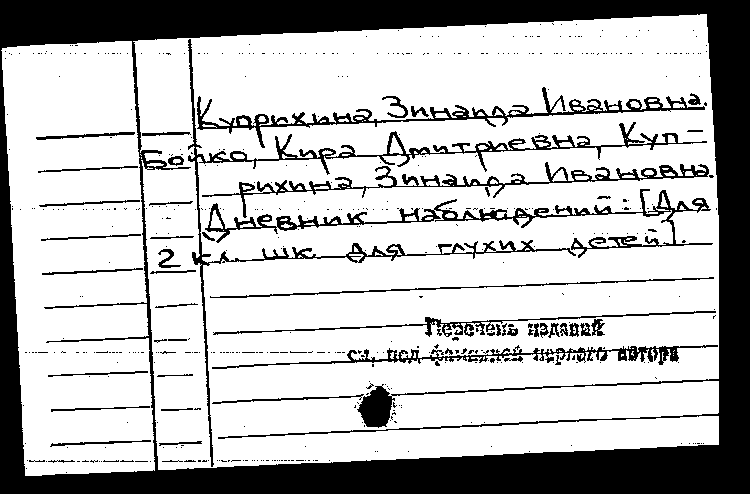 Куприхина, Зинаида Ивановна.
Бойко, Кира Дмитриевна, Куп-
рихина, Зинаида Ивановна.
Дневник наблюдений: [Для
2 кл. шк. для глухих детей].
Перечень изданий
см. под фамилией первого автора